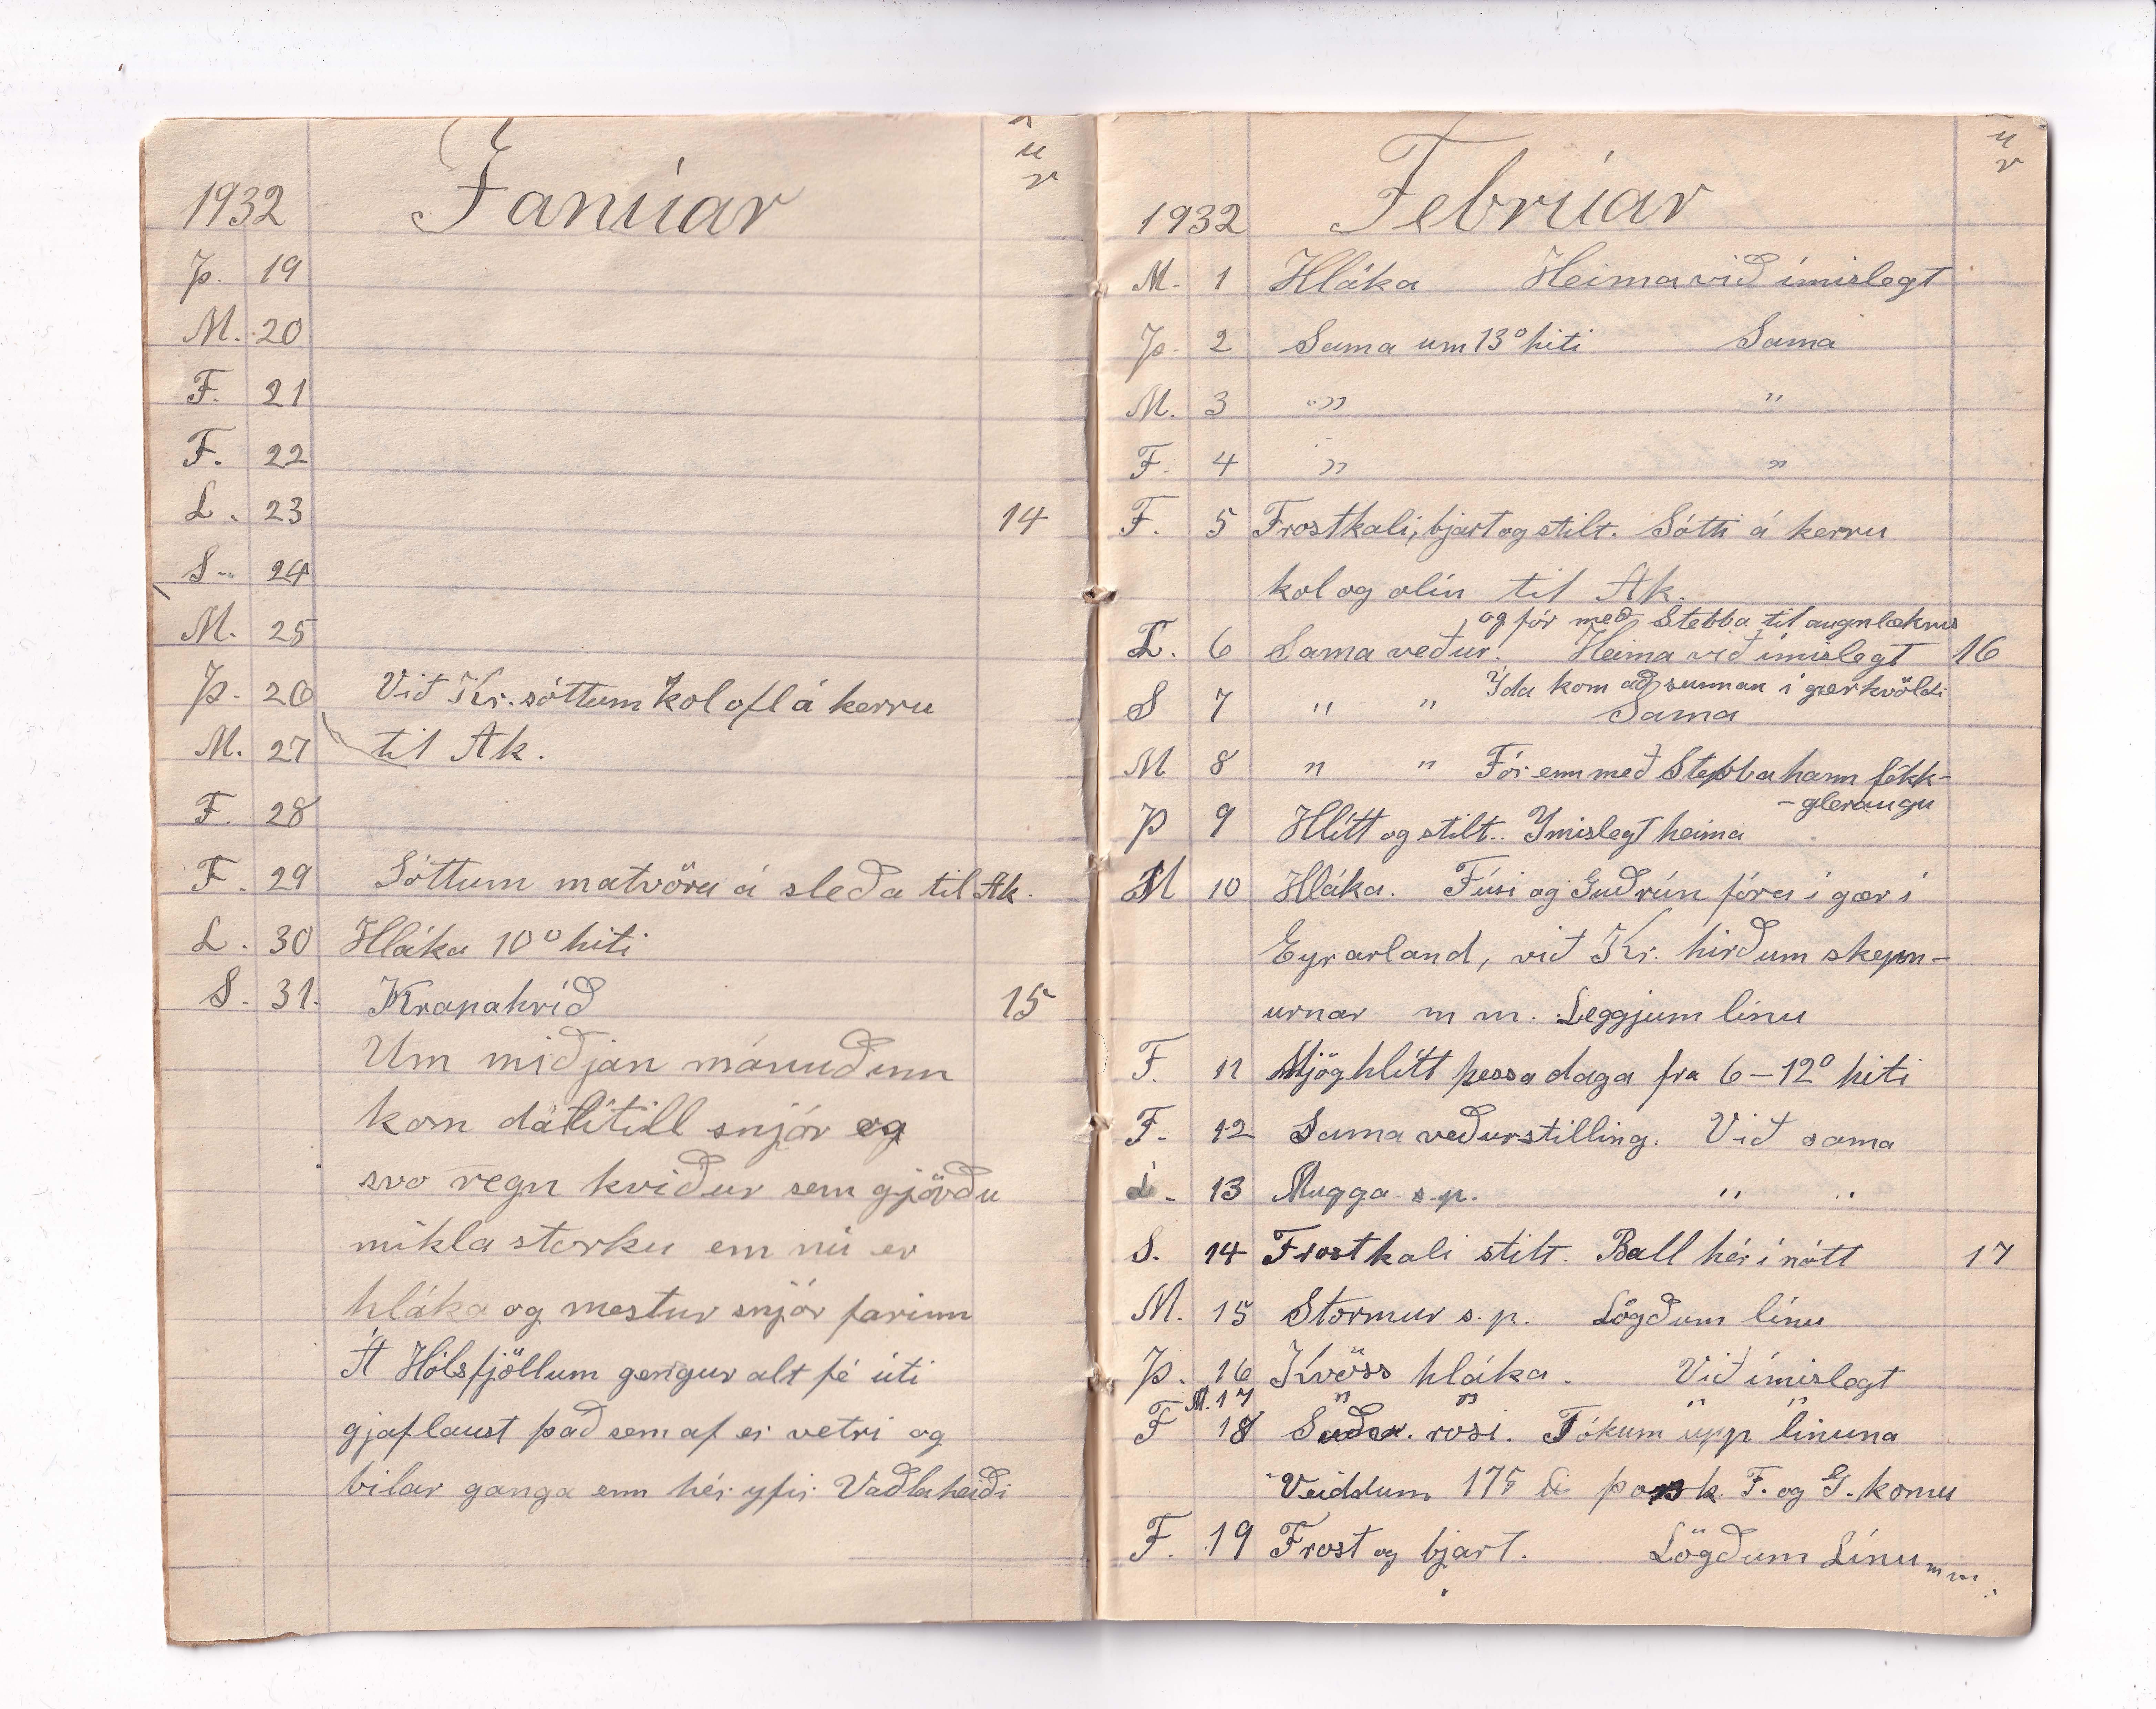 1932 Janúar
Þ. 19
M. 20
F. 21
F. 22
L. 23 14
S. 24
M. 25
Þ. 26 Við Kr. sóttum kol ofl á kerru
M. 27 til Ak.
F. 28
F. 29 Sóttum matvöru á sleða til Ak.
L. 30 Hláka 10° hiti
S. 31. Krapahríð 15
Um miðjan mánuðinn
kom dálítill snjór og
svo regn kviður sem gjörðu
mikla storku em nú er
hláka og mestur snjór farinn
Á Hólsfjöllum gengur alt fé úti
gjaflaust það sem af er vetri og
bílar ganga enn hér yfir Vaðlaheiði
u
r
1932 Febrúar
u
r
M. 1 Hláka Heima við ímislegt
Þ. 2 Sama um 13° hiti Sama
M. 3 " "
F. 4 " "
F. 5 Frostkali, bjart og stilt. Sótti á kerru
kol og olíu til Ak.
og fór með Stebba til augnlæknis
L. 6 Sama veður. Heima við ímislegt 16
Ída kom að sunnan í gærkvöldi
S 7 " " Sama
M 8 " " Fór enn með Stebba hann fékk-
-gleraugu
Þ 9 Hlítt og stilt.. Ymislegt heima
M 10 Hláka. Fúsi og Guðrún fóru í gær í
Eyrarland, við Kr. hirðum skepn-
urnar m m. Leggjum línu
F. 11 Mjög hlítt þessa daga fra 6-12° hiti
F. 12 Sama veðurstilling. Við sama
L. 13 Mugga s.p. " "
S. 14 Frostkali stilt. Ball hér í nótt 17
M. 15 Stormur s.p. Lögðum línu
Þ. 16 Kvöss hláka. Við ímislegt
M. 17 " " " "
F 18 rosi. Tókum upp línuna
Veiddum 175 þorsk. F. og G. komu
F. 19 Frost og bjart. Lögðum Línu m m.